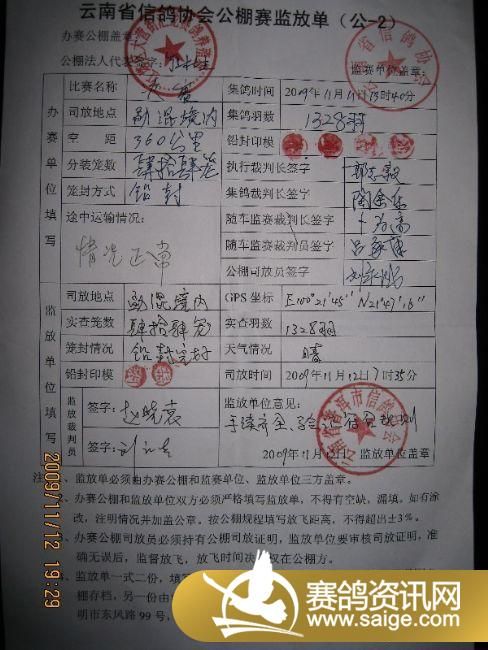 云南省信鸽协会公棚赛监放单（公-2）
办赛公棚盖章：
公棚法人代表签字： 监赛单位盖章：
办赛单位填写
比赛名称 决赛 集鸽时间 2009年11月11日13时40分
司放地点 勐混境内 集鸽羽数 1328羽
空距 360公里 铅封印模
分装笼数 肆拾肆笼 执行裁判长签字
笼封方式 铅封 集鸽裁判长签字
途中运输情况： 随车监赛裁判长签字
情况正常 随车监赛裁判员签字
公棚司放员签字
监放单位填写
司放地点 勐混境内 GPS 坐标 E100°21'45" N21°47'16"
实查笼数 肆拾肆笼 实查羽数 1328羽
笼封情况 铅封完好 天气情况 晴
铅封印模 司放时间 2009年11月12日7时35分
监放裁判员
签字： 监放单位意见：
签字：
2009年11月12日 监放单位盖章
注：、监放单必须由办赛公棚和监赛单位、监放单位三方盖章。
、办赛公棚和监放单位双方必须严格填写监放单，不得有空缺、漏填。如有涂
改，注明情况并加盖公章。按公棚规程填写放飞距离，不得超出±3%。
、办赛公棚司放员必须持有公棚司放证明，监放单位要审核司放证明，准
确无误后，监督放飞，放飞时间决定权在公棚方。
、监放单一式二份，填写
棚存档，另一份由
明市东风路 99 号，
2009/11/12 19:29
赛鸽资讯网
www.saige.com